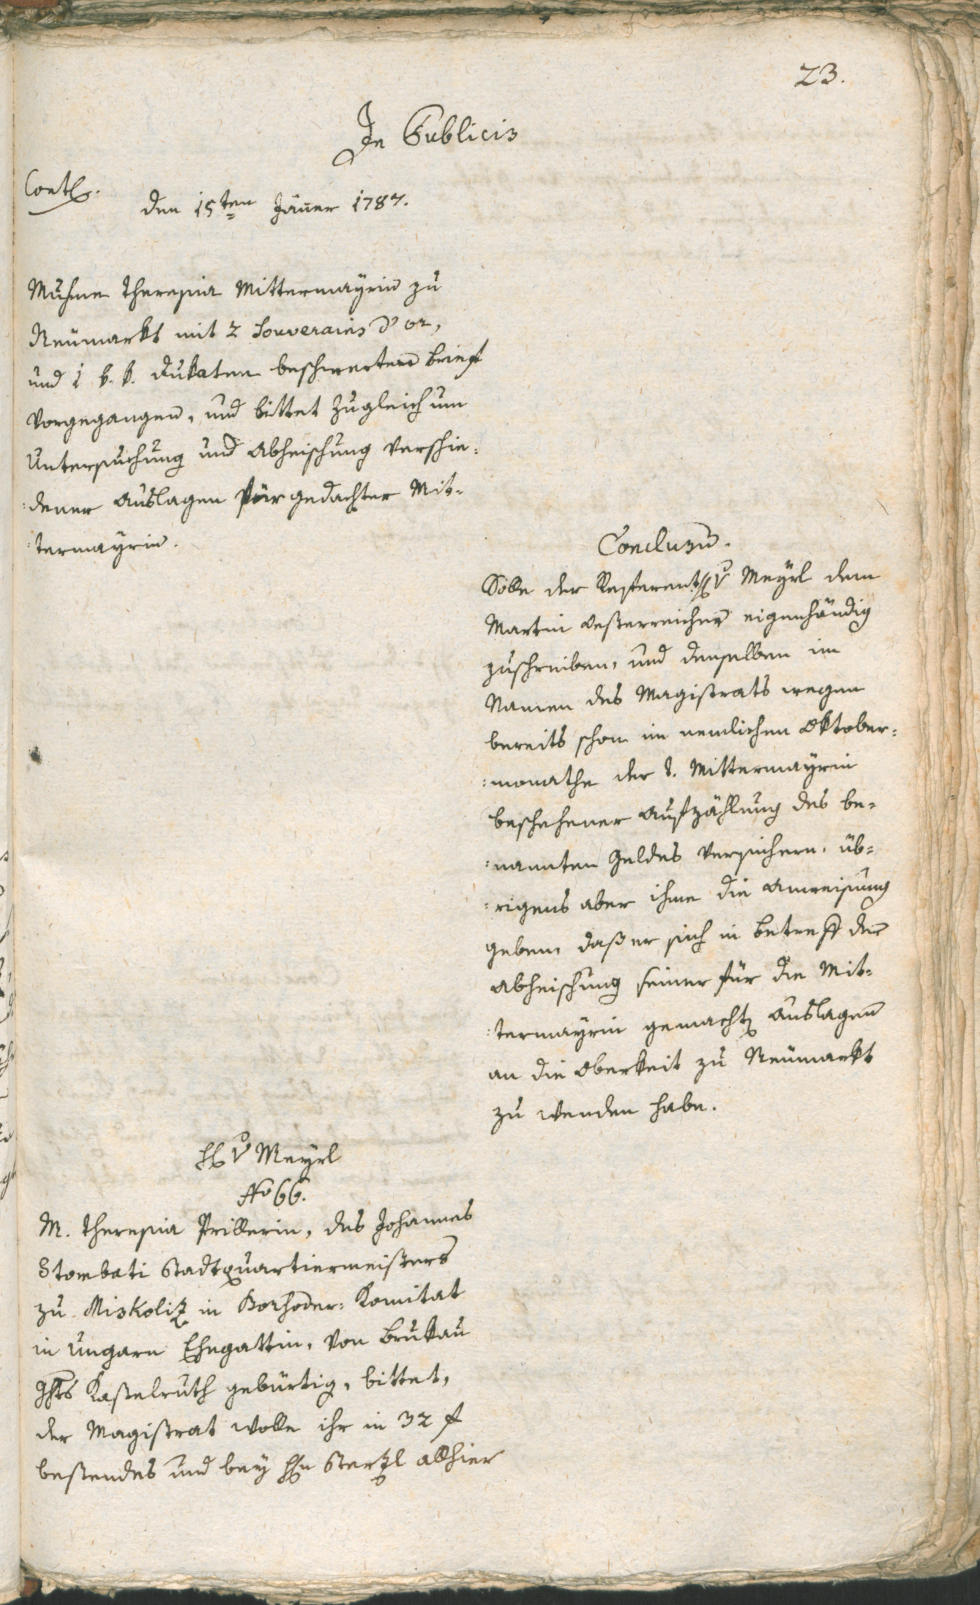 23.
In Publicis
Cont.
den 15ten Jäner 1787.
Muhme Theresia Mittermayrin zu
Neumarkt mit 2 Souverains d'or,
und 1 k. k. Dukaten beschwerten Brief
vorgegangen, und bittet zugleich um
Untersuchung und Abheischung verschie-
:dener Auslagen für gedachter Mit-
:termayrin.
Conclusũ.
Solle der Referent H v Meyrl dem
Martin Oesterreicher eigenhändig
zuschreiben, und denselben im
Namen des Magistrats wegen
bereits schon im nemlichen Oktober-
:monathe der T. Mittermayrin
beschehener Aufzählung des be-
:nannten Geldes versichern, üb-
:rigens aber ihme die Anweisung
geben, daß er sich in Betreff der
Abheischung seiner für die Mit-
:termayrin gemacht Auslagen
an die Oberkeit zu Neumarkt
zu wenden habe.
H v Meyrl
No 66.
M. Theresia Prillerin, des Johannes
Stombati Stadtquartiermeisters
zu Miskoliz in Borsoder-Komitat
in Ungarn Ehegattin, von
Kastelruth gebürtig, bittet,
der Magistrat wolle ihr in 32 f
bestendes und bey Hn Sterzl allhier